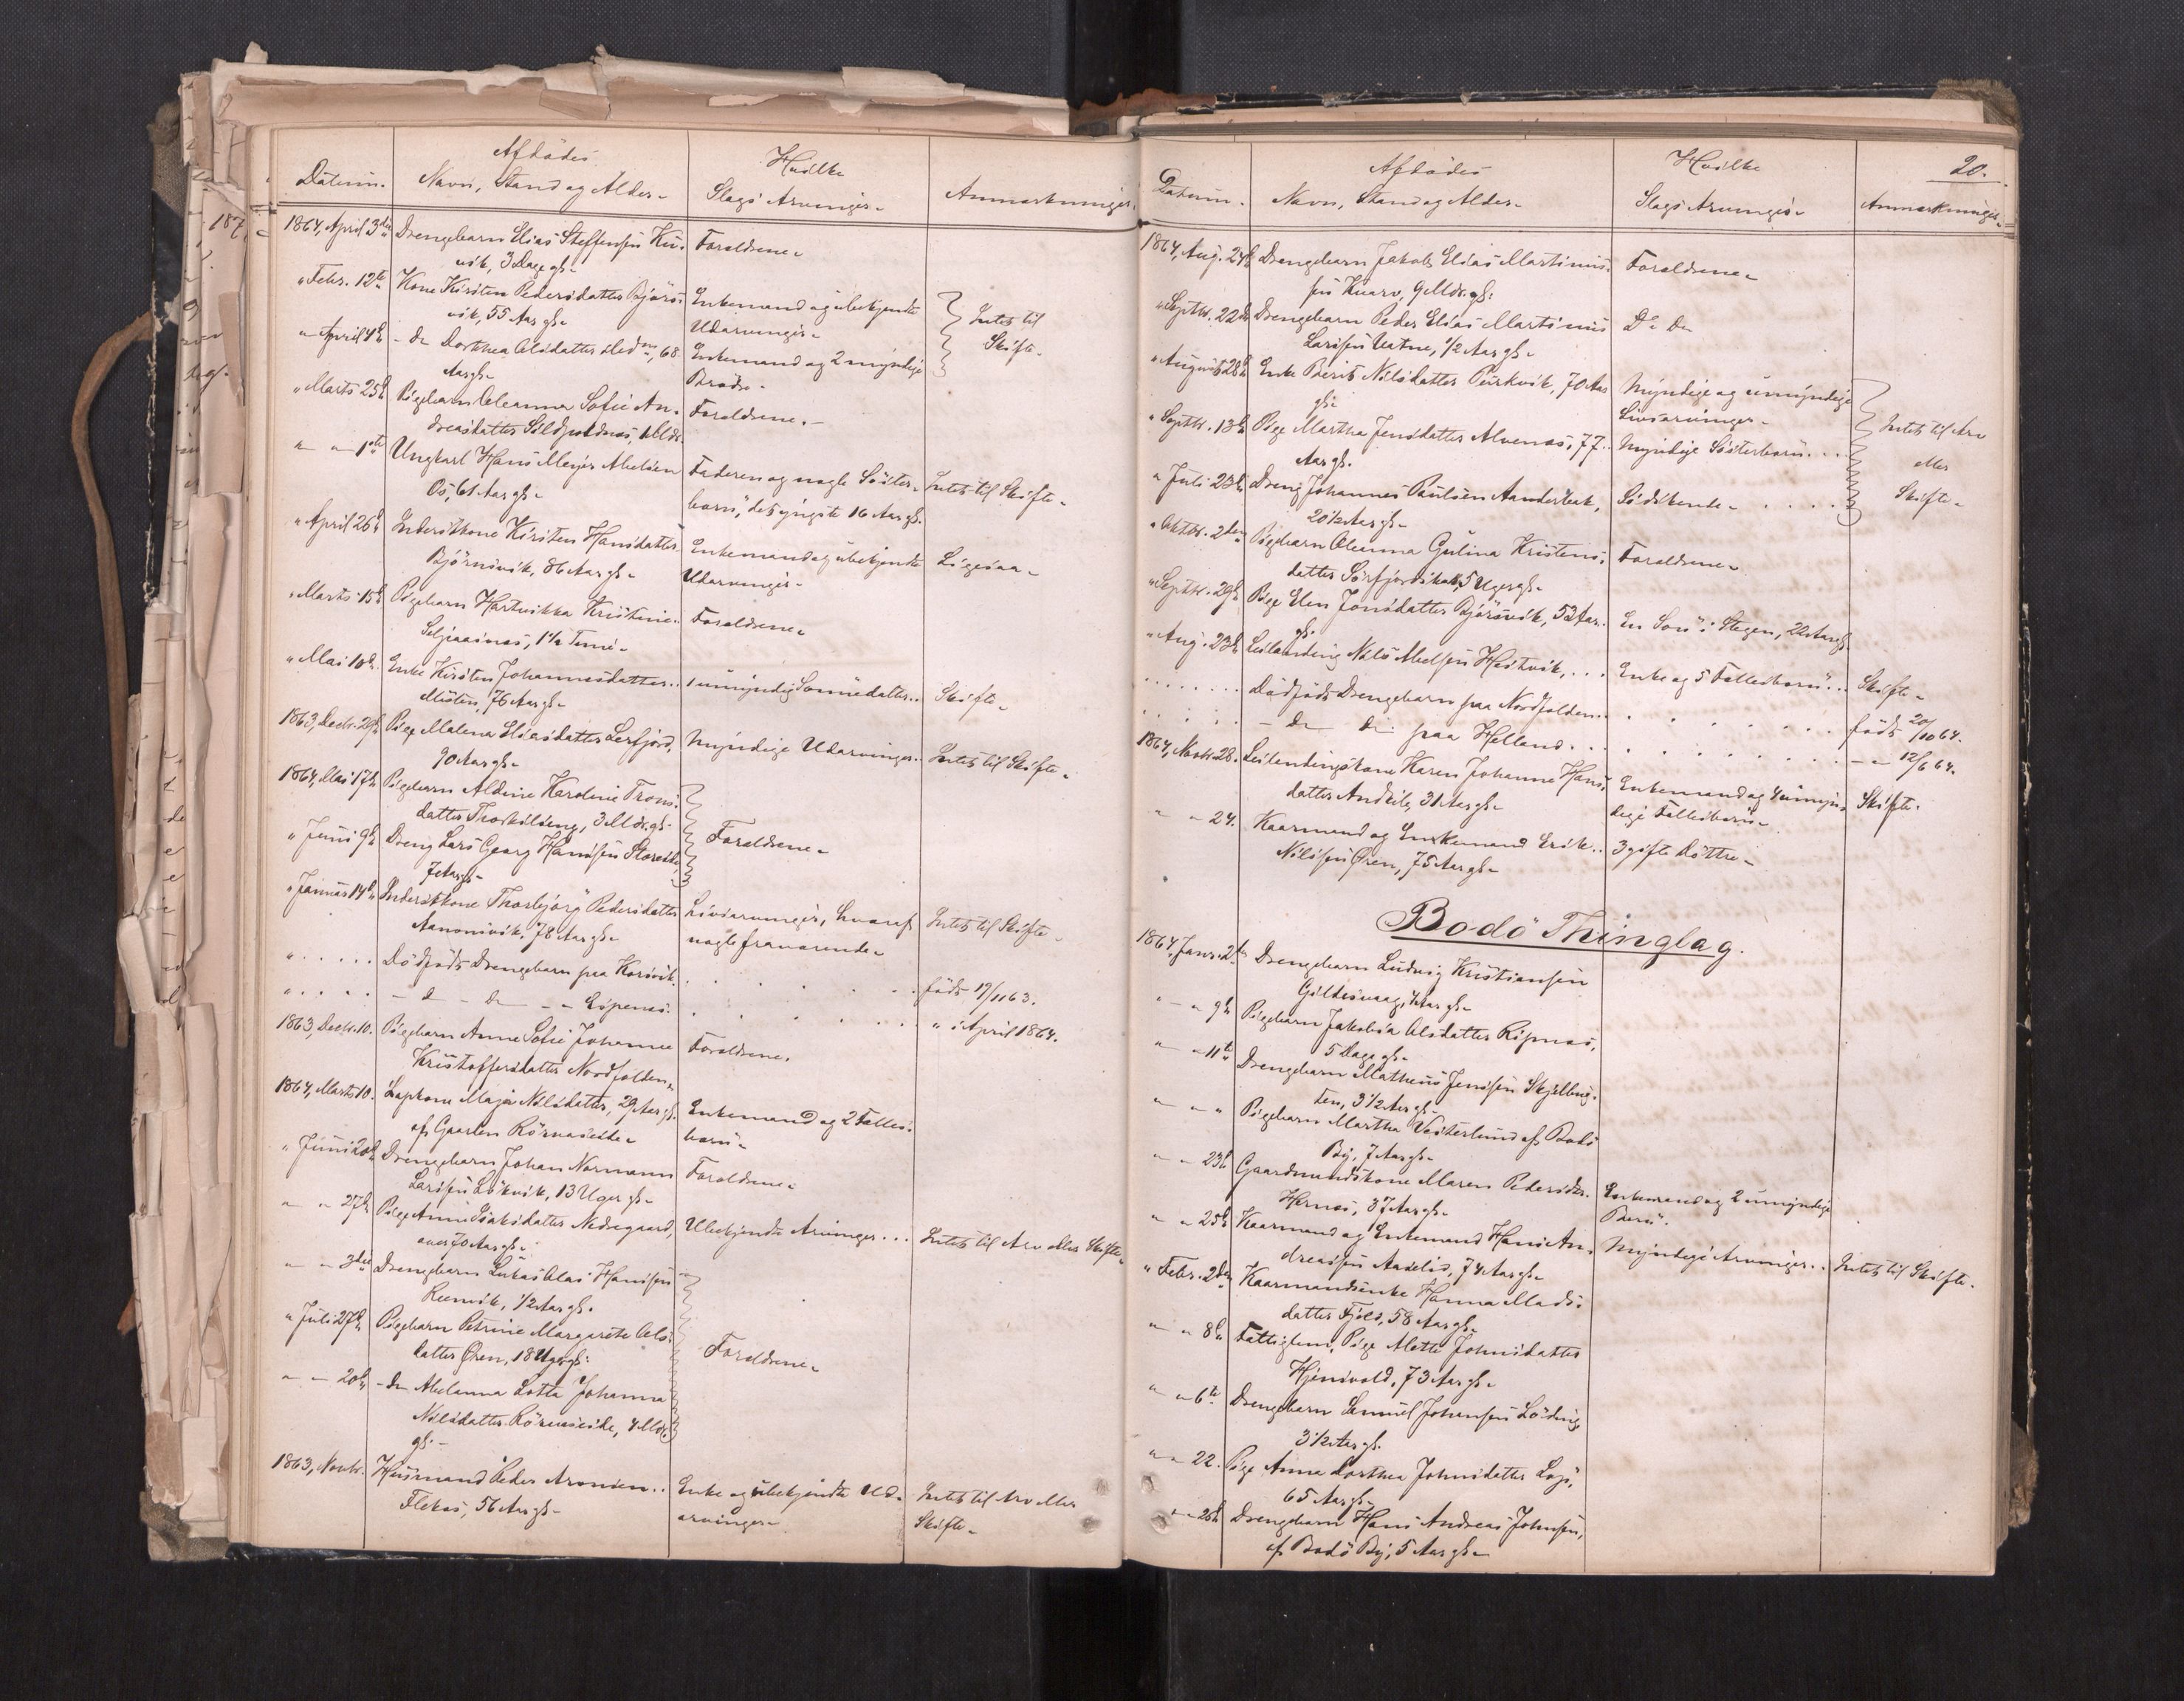 Afdödes
Hvilke
Datum. Navn, Stand og Alder. Slags Arvinger. Anmærkninger.
1864, April 3die Drengebarn Elias Steffensen
3 Dage gl. Forældrene.
" Febr. 12te Kone Kirsten Pedersdatter
vik, 55 Aar gl. Enkemand og ubekjendte Udarvinger. Intet til Skifte.
" April 4de - do Dorthea Olsdatter 68
Aar gl. Enkemand og 2 myndige Brödre.
" Marts 25de Pigebarn Oleanna Sofie An-
dreasdatter Forældrene.
" " 1ste Ungkarl Hans Meyer
Os, 61 Aar gl. Faderen og nogle Söster-
börn, det yngste 16 Aar gl. Intet til Skifte.
" April 26de Inderstkone Kirsten Hansdatter
Björnsvik, 86 Aar gl. Enkemand og ubekjendte
Udarvinger. Ligesaa.
" Marts 15de Pigebarn Hartvikka Kristine
1½ Time. Forældrene.
" Mai 10de Enke Kirsten Johannesdatter
Misten, 76 Aar gl. 1 umyndig Sønnedatter. Skifte.
1863, Decbr. 29de Pige Malena Eliasdatter Lerfjord,
90 Aar gl. Myndige Udarvinger. Intet til Skifte.
1864, Mai 17de Pigebarn Aldine Karoline Trons-
datter 3 Mdr. gl.
" Juni 9de Dreng Lars Georg Hansen
7 Aar gl. Forældrene.
" Januar 14de Inderstkone Thorbjørg Pedersdatter
78 Aar gl. Livsarvinger, hvoraf
nogle fraværende. Intet til Skifte.
" Dödfödt Drengebarn paa Korsvik. födt 19/11 63.
" - do - do - " i April 1864.
1863, Decbr. 10. Pigebarn Anne Sofie Johanne
Kristoffersdatter Nordfolden. Forældrene.
1864, Marts 10. Lapkone Maja Nilsdatter, 29 Aar gl.
af Gaarden Enkemand og 2 Fælles-
börn.
" Juni 20de Drengebarn Johan Normann
Larsen Lökvik, 13 Uger gl. Forældrene.
" " 27de Pige Anne Isaksdatter Nedregaard,
over 70 Aar gl. Ubekjendte Arvinger. Intet til Arv eller Skifte.
" " 3die Drengebarn Lukas Olai Hansen
½ Aar gl.
" Juli 27de Pigebarn Petrine Margrete Ols-
datter Øren, 18 Uger gl. Forældrene.
" " 20de - do Lotta Johanna
Nilsdatter
gl.
1863, Novbr. Husmand Peder Aronsen
Flekas, 56 Aar gl. Enke og ubekjendte Ud-
arvinger. Intet til Arv eller
Skifte.
20.
Afdödes
Hvilke
Datum. Navn, Stand og Alder. Slags Arvinger. Anmærkninger.
1864, Aug. 24de Drengebarn Jakob Elias Martinus-
sen 9 Mdr. gl. Forældrene.
" Septbr. 22de Drengebarn Peder Elias Martinus
Larsen Vatne, ½ Aar gl. Do Do
" August 28de Enke Berit Nilsdatter 70 Aar
gl. Myndige og umyndige
Livsarvinger.
" Septbr. 13de Pige Martha Jensdatter Alvenæs, 77
Aar gl. Myndige Sösterbörn. Intet til Arv
eller
Skifte.
" Juli 23de Dreng Johannes Paulsen
20½ Aar gl. Södskende.
" Oktbr. 2den Pigebarn Oleanna Gulina Kristens-
datter 5 Uger gl. Forældrene.
" Septbr. 29de Pige Elen Jonsdatter 53 Aar
gl. En Sön i Stegen, 22 Aar gl.
" Aug. 23de Leilænding Nils Hestvik, Enke og 5 Fællesbörn. Skifte.
Dödfödt Drengebarn paa Nordfolden. födt 20/10 64.
- do do paa Helland. - " 12/6 64.
1864, Novbr. 28. Leilendingskone Karen Johanne Hans-
datter 31 Aar gl. Enkemand og 4 umyn-
dige Fællesbörn. Skifte.
" " 24. Kaarmand og Enkemand Erik
Nilsen Øren, 75 Aar gl. 3 gifte Döttre.
Bodö Thinglag.
1864, Janr. 2den Drengebarn Ludvig Kristiansen
Gildesvaag,
" " 9de Pigebarn Jakobia Olsdatter Ripnæs,
5 Dage gl.
" " 11te Drengebarn Matheus Jensen
3½ Aar gl.
" " " Pigebarn Martha Vesterlund af Bodö
By, 7 Aar gl.
" " 23de Gaardmandskone Maren Pedersdtr.
Hernæs, 37 Aar gl. Enkemand og 2 umyndige
Börn.
" " 25de Kaarmand og Enkemand Hans An-
dreassen 74 Aar gl. Myndige Arvinger. Intet til Skifte.
" Febr. 2den Kaarmandsenke Hanna Mads-
datter 58 Aar gl.
" " 8de Fattiglem, Pige Mette Johnsdatter
73 Aar gl.
" " 6te Drengebarn Samuel Johansen Löding,
3½ Aar gl.
" " 22. Pige Anne Dorthea Johnsdatter
65 Aar gl.
" " 26de Drengebarn Hans Andreas Johnsen,
af Bodö By, 5 Aar gl.